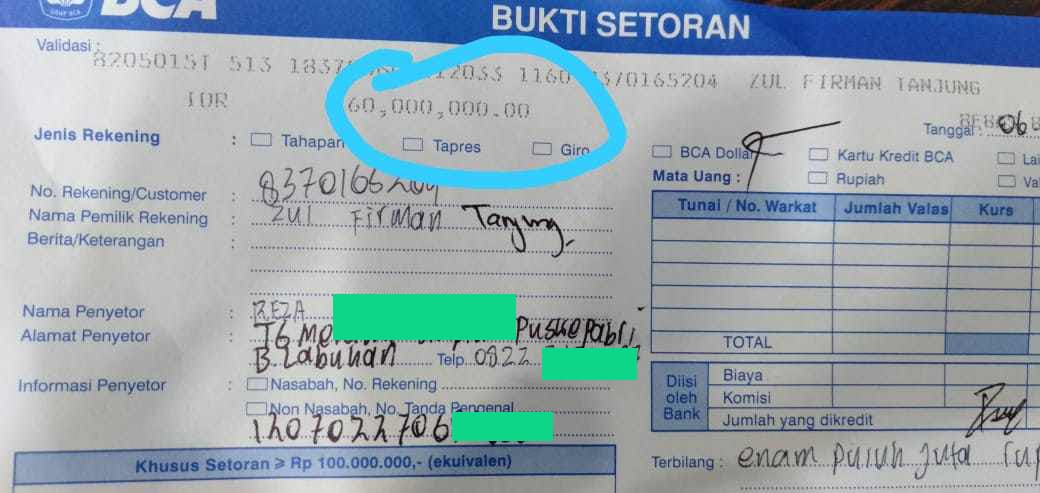 BCA
BUKTI SETORAN
Validasi :
8205015T 513 1160 70165204 ZUL FIRMAN TANJUNG
IDR 60,000,000.00
Tanggal : 06
Jenis Rekening : Tahapan Tapres Giro BCA Dollar Kartu Kredit BCA
Mata Uang : Rupiah
No. Rekening/Customer :
Nama Pemilik Rekening : Zul Firman Tanjung
Berita/Keterangan :
Tunai / No. Warkat Jumlah Valas Kurs
TOTAL
Nama Penyetor : REZA
Alamat Penyetor :
B. Labuhan Telp. 0822
Informasi Penyetor : Nasabah, No. Rekening
Non Nasabah, No. Tanda Pengenal
Diisi oleh Bank
Biaya
Komisi
Jumlah yang dikredit
Khusus Setoran ≥ Rp 100.000.000,- (ekuivalen)
Terbilang : enam puluh juta rup